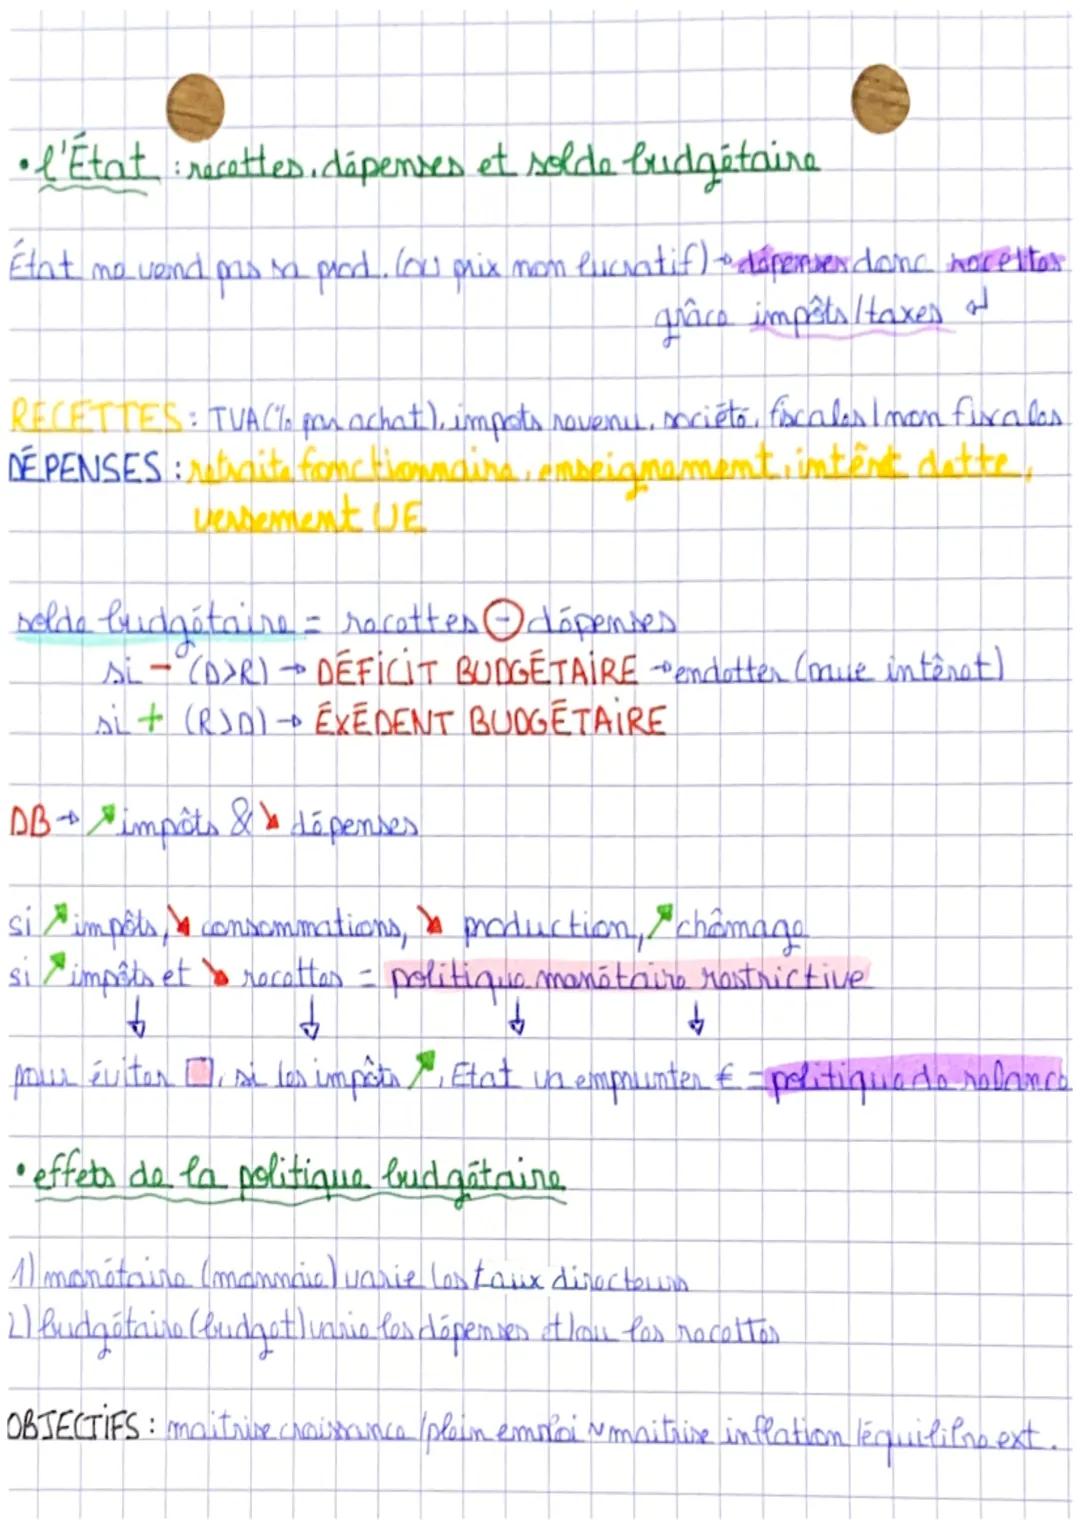 • l'État : recettes, dépenses et solde budgétaire
État ne vend pas sa prod. (ou prix non lucratif) → dépenses donc recettes
grâce impôts/taxes ↲
RECETTES : TVA (% par achat), impots revenu, société, fiscales/non fiscales
DÉPENSES : retraite fonctionnaire, enseignement, intérêt dette,
versement UE
solde budgétaire = recettes - dépenses
si - (D>R) → DÉFICIT BUDGÉTAIRE → endetter (mue intêret)
si + (R>D) → ÉXÉDENT BUDGÉTAIRE
DB → ↗ impôts & ↘ dépenses
si ↗ impôts, ↘ consommations, ↘ production, ↗ chômage
si ↗ impôts et ↘ recettes = politique monétaire restrictive
↓ ↓ ↓ ↓
pour éviter □, si les impôts ↗, Etat va emprunter € = politique de relance
• effets de la politique budgétaire
1) monétaire (monnaie) varie les taux directeurs
2) budgétaire (budget) varie les dépenses et/ou les recettes
OBJECTIFS : maitrise croissance /plein emploi ~ maitrise inflation /équilibre ext.